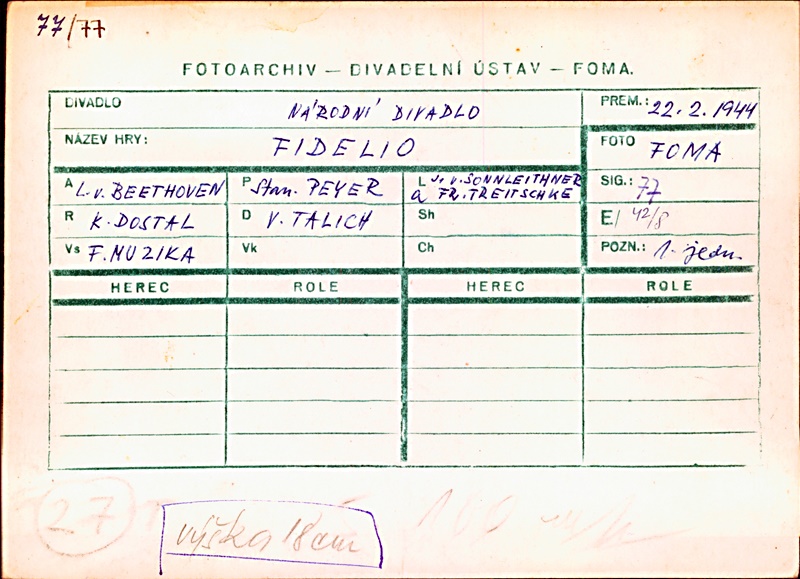 77/77
FOTOARCHIV — DIVADELNÍ ÚSTAV — FOMA.
DIVADLO NÁRODNÍ DIVADLO PREM.: 22. 2. 1944
NÁZEV HRY: FIDELIO FOTO FOMA
A L. v. BEETHOVEN P Stan. PEYER L J. v. SONNLEITHNER
a FR. TREITSCHKE SIG.: 77
R K. DOSTAL D V. TALICH Sh E/ 42/8
Vs F. MUZIKA Vk Ch POZN.: 1. jedn.
HEREC ROLE HEREC ROLE
27
výška 18 cm